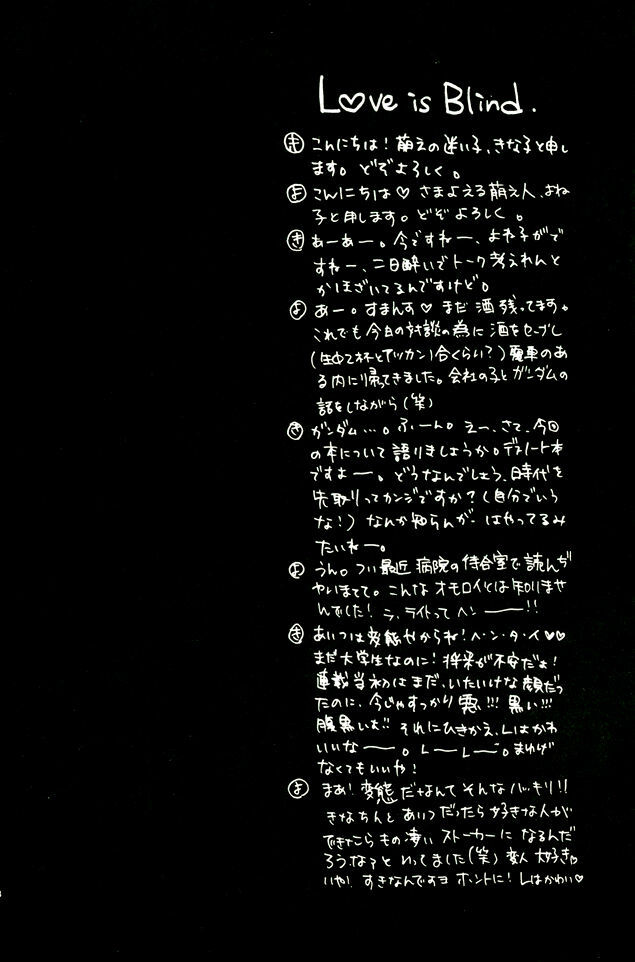 Love is Blind.
き こんにちは！萌えの迷い子、きな子と申し
ます。どぞよろしく。
よ こんにちは♡さまよえる萌え人、よね
子と申します。どぞよろしく。
き あーあー。今ですねー、よね子がで
すねー、二日酔いでトーク考えれんと
かほざいてるんですけど。
よ あー。すまんす♡まだ酒残ってます。
これでも今日の対談の為に酒をセーブし
(生中2杯とアツカン1合くらい？)電車のあ
る内に帰ってきました。会社の子とガンダムの
話をしながら(笑)
き ガンダム…。ふーん。えー、さて、今回
の本について語りましょうか。デスノート本
ですよー。どうなんでしょう、時代を
先取りってカンジですか？(自分でいう
な！)なんか知らんが、はやってるみ
たいねー。
よ うん。つい最近病院の待合室で読んぢ
ゃいまして。こんなオモロイとは知りませ
んでした！ラ、ライトってヘンー！！
き あいつは変態やからね！ヘ・ン・タ・イ♡♡
まだ大学生なのに！将来が不安だよ！
連載当初はまだ、いたいけな顔だっ
たのに、今じゃすっかり悪い!!!黒い!!!
腹黒いよ!!それにひきかえ、Lはかわ
いいなー。LーLー。まゆげ
なくてもいいや！
よ まあ！変態だなんてそんなハッキリ!!
きなちんとあいつだったら好きな人が
できたらもの凄いストーカーになるんだ
ろうなあといってました(笑)変人大好き♡
いや！すきなんですヨホントに！Lはかわいい♡